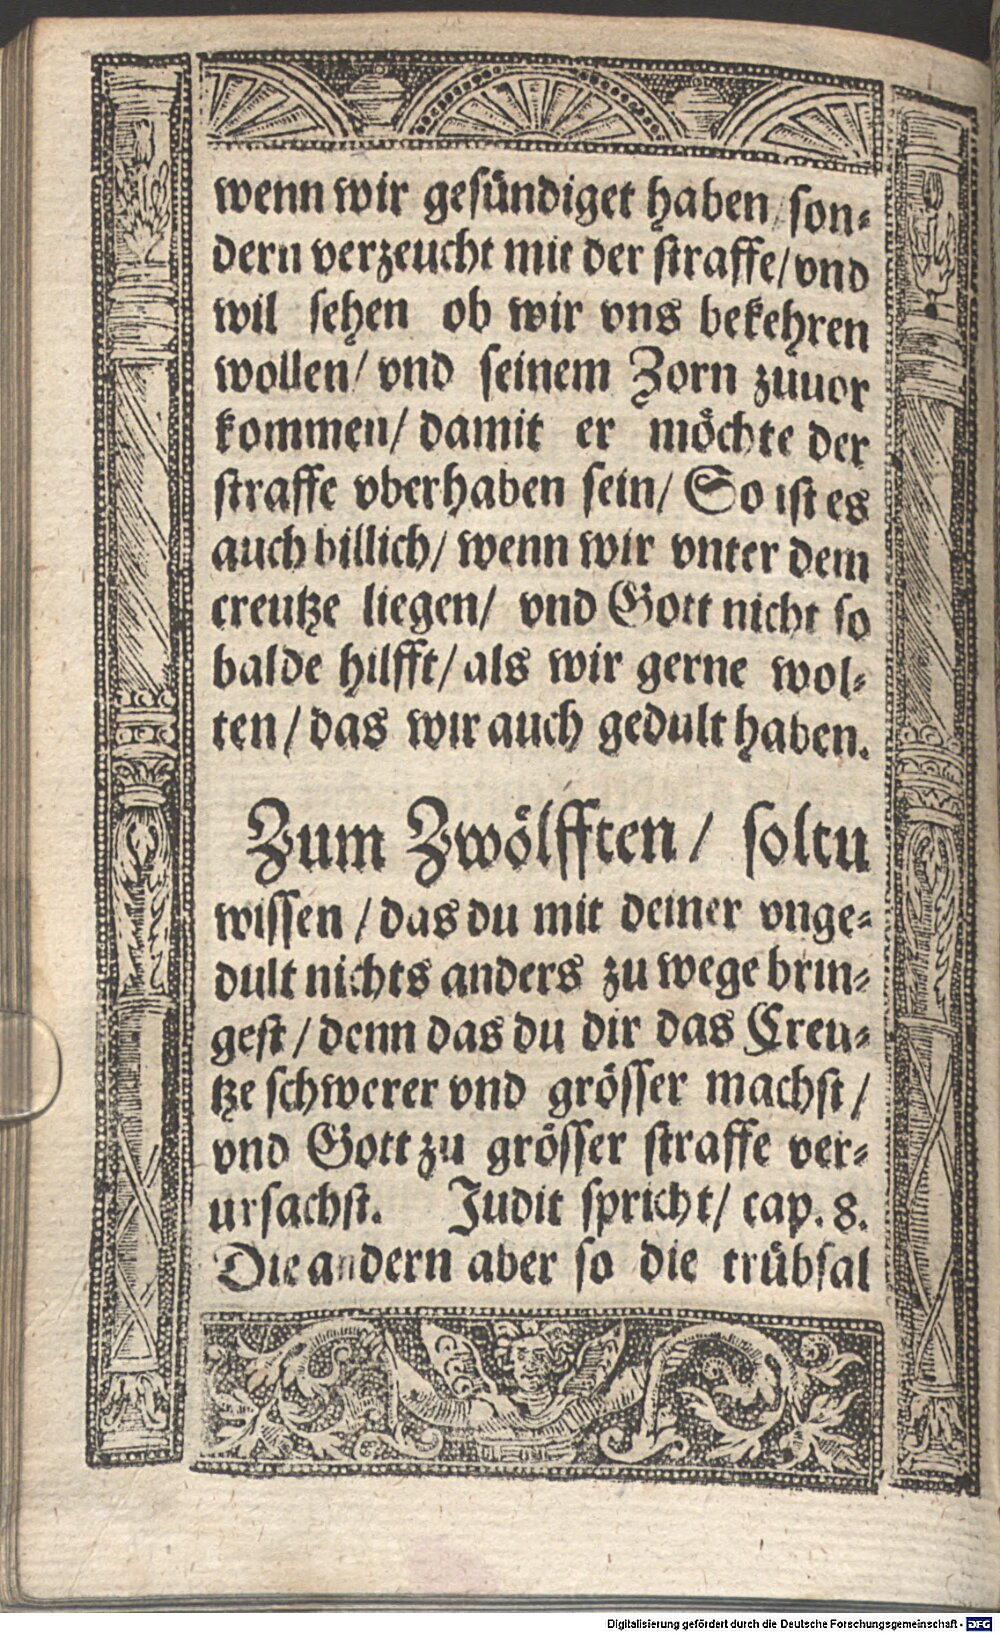 wenn wir gesündiget haben/ son⸗
dern verzeucht mit der straffe/ vnd
wil sehen ob wir vns bekehren
wollen/ vnd seinem Zorn zuuor
kommen/ damit er möchte der
straffe vberhaben sein/ So ist es
auch billich/ wenn wir vnter dem
creutze liegen/ vnd Gott nicht so
balde hilfft/ als wir gerne wol⸗
ten/ das wir auch gedult haben.
Zum Zwölfften/ soltu
wissen/ das du mit deiner vnge⸗
dult nichts anders zu wege brin⸗
gest/ denn das du dir das Creu⸗
tze schwerer vnd grösser machst/
vnd Gott zu grösser straffe ver⸗
ursachst. Judit spricht/ cap. 8.
Die andern aber so die trübsal
Digitalisierung gefördert durch die Deutsche Forschungsgemeinschaft - DFG